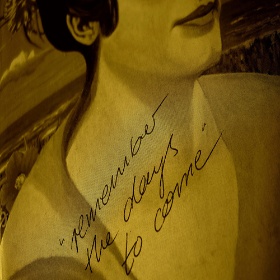 "remember
the days
to come"